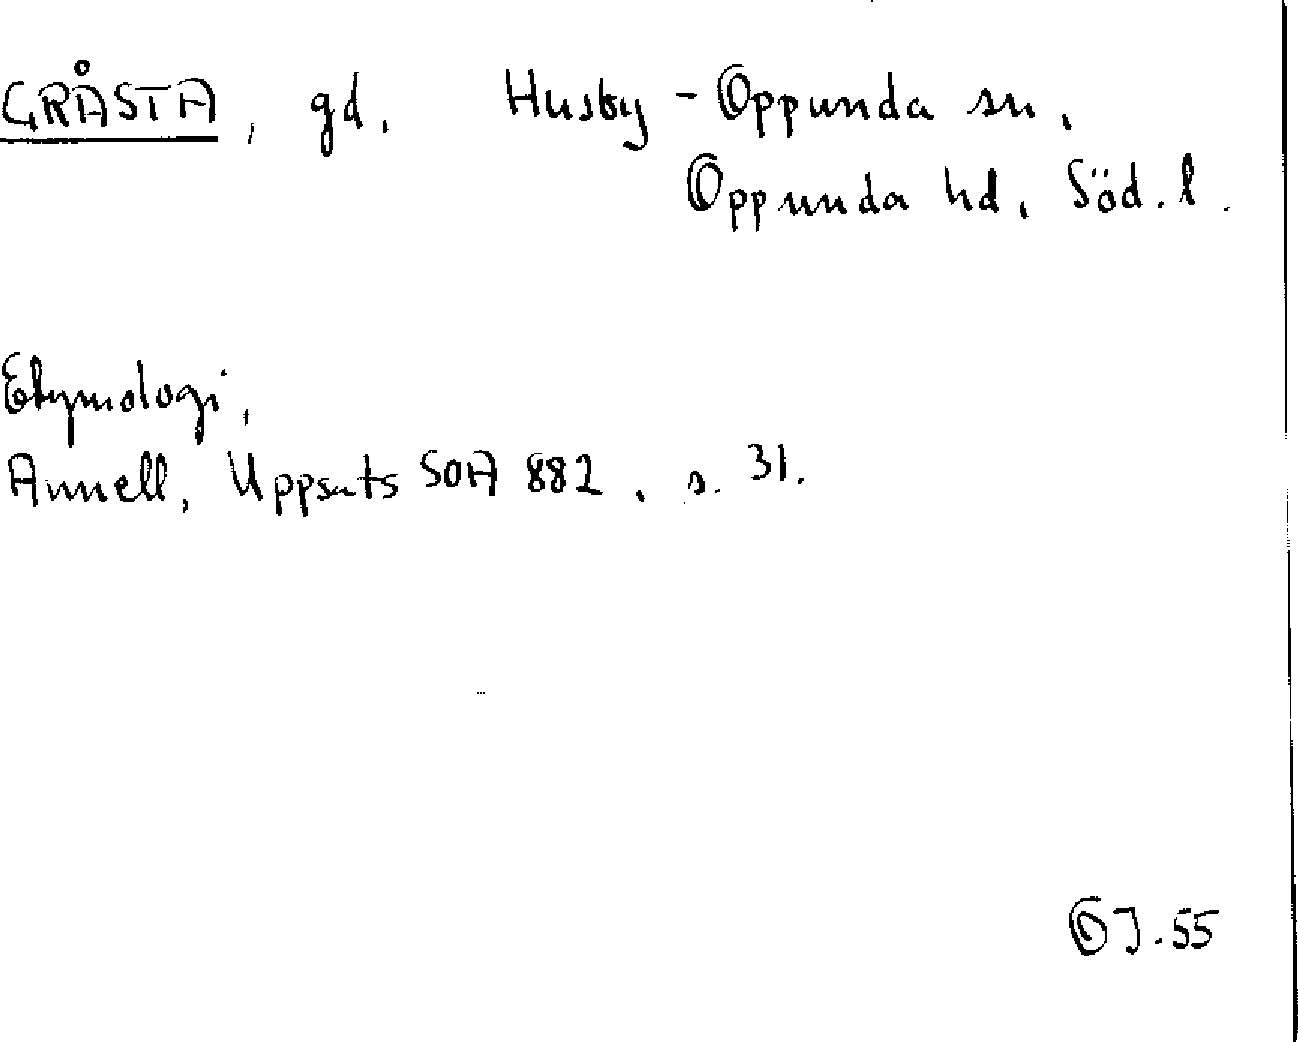 GRÅSTA, gd. Husby-Oppunda sn,
Oppunda hd, Söd.l.
Etymologi,
Annell, Uppsats SOA 882, s. 31.
OJ.55